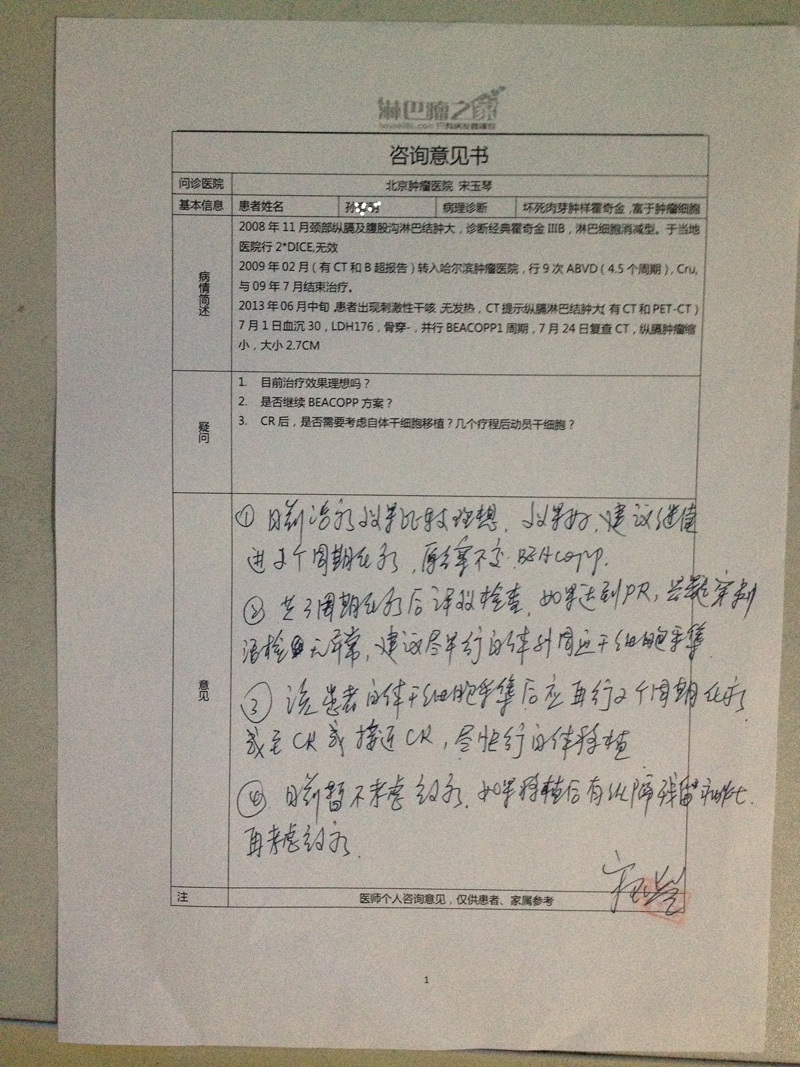 淋巴瘤之家
咨询意见书
问诊医院 北京肿瘤医院 宋玉琴
基本信息 患者姓名 孙 病理诊断 坏死肉芽肿样霍奇金，富于肿瘤细胞
病情简述
2008年11月颈部纵膈及腹股沟淋巴结肿大，诊断经典霍奇金IIIB，淋巴细胞消减型。于当地
医院行2*DICE,无效
2009年02月（有CT和B超报告）转入哈尔滨肿瘤医院，行9次ABVD（4.5个周期），Cru,
与09年7月结束治疗。
2013年06月中旬，患者出现刺激性干咳，无发热，CT提示纵膈淋巴结肿大（有CT和PET-CT）
7月1日血沉30，LDH176，骨穿-，并行BEACOPP1周期，7月24日复查CT，纵膈肿瘤缩
小，大小2.7CM
疑问
1. 目前治疗效果理想吗？
2. 是否继续BEACOPP方案？
3. CR后，是否需要考虑自体干细胞移植？几个疗程后动员干细胞？
意见
① 目前治疗效果比较理想，效果好，建议继续
进2个周期化疗，原方案不变 BEACOPP.
② 共3周期化疗后评效检查，如果达到PR，骨髓穿刺
活检无异常，建议尽早行自体外周血干细胞采集
③ 该患者自体干细胞采集后应再行2个周期化疗
或至CR或接近CR，尽快行自体移植
④ 目前暂不考虑放疗，如果移植后有纵隔残留病灶
再考虑放疗.
宋玉琴
注 医师个人咨询意见，仅供患者、家属参考
1